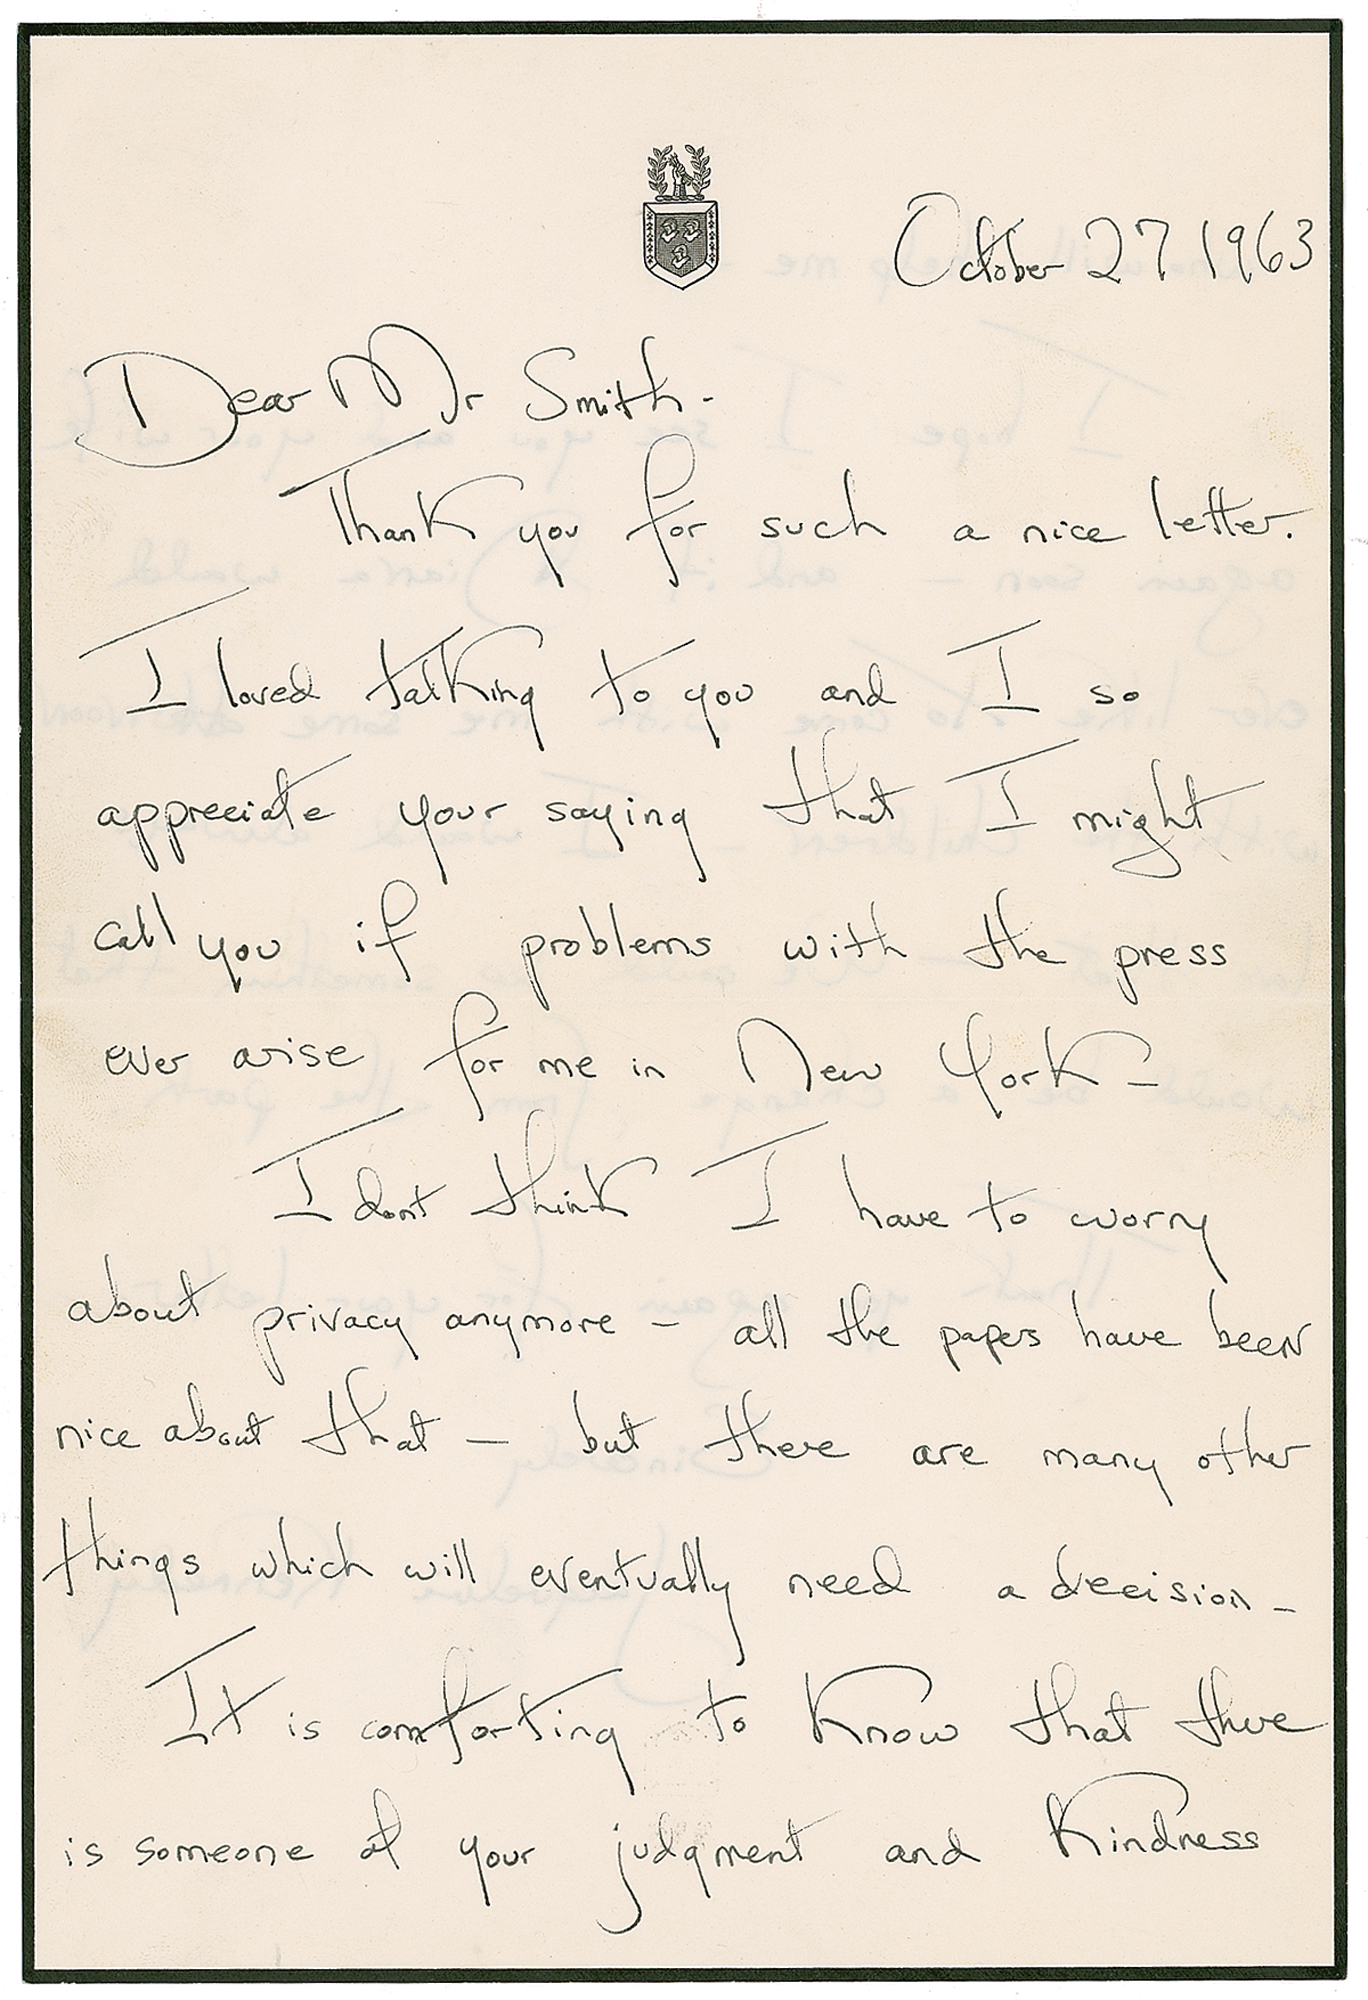 October 27 1963
Dear Mr Smith-
Thank you for such a nice letter.
I loved talking to you and I so
appreciate your saying that I might
call you if problems with the press
ever arise for me in New York—
I dont think I have to worry
about privacy anymore — all the papers have been
nice about that — but there are many other
things which will eventually need a decision—
It is comforting to know that there
is someone of your judgment and kindness